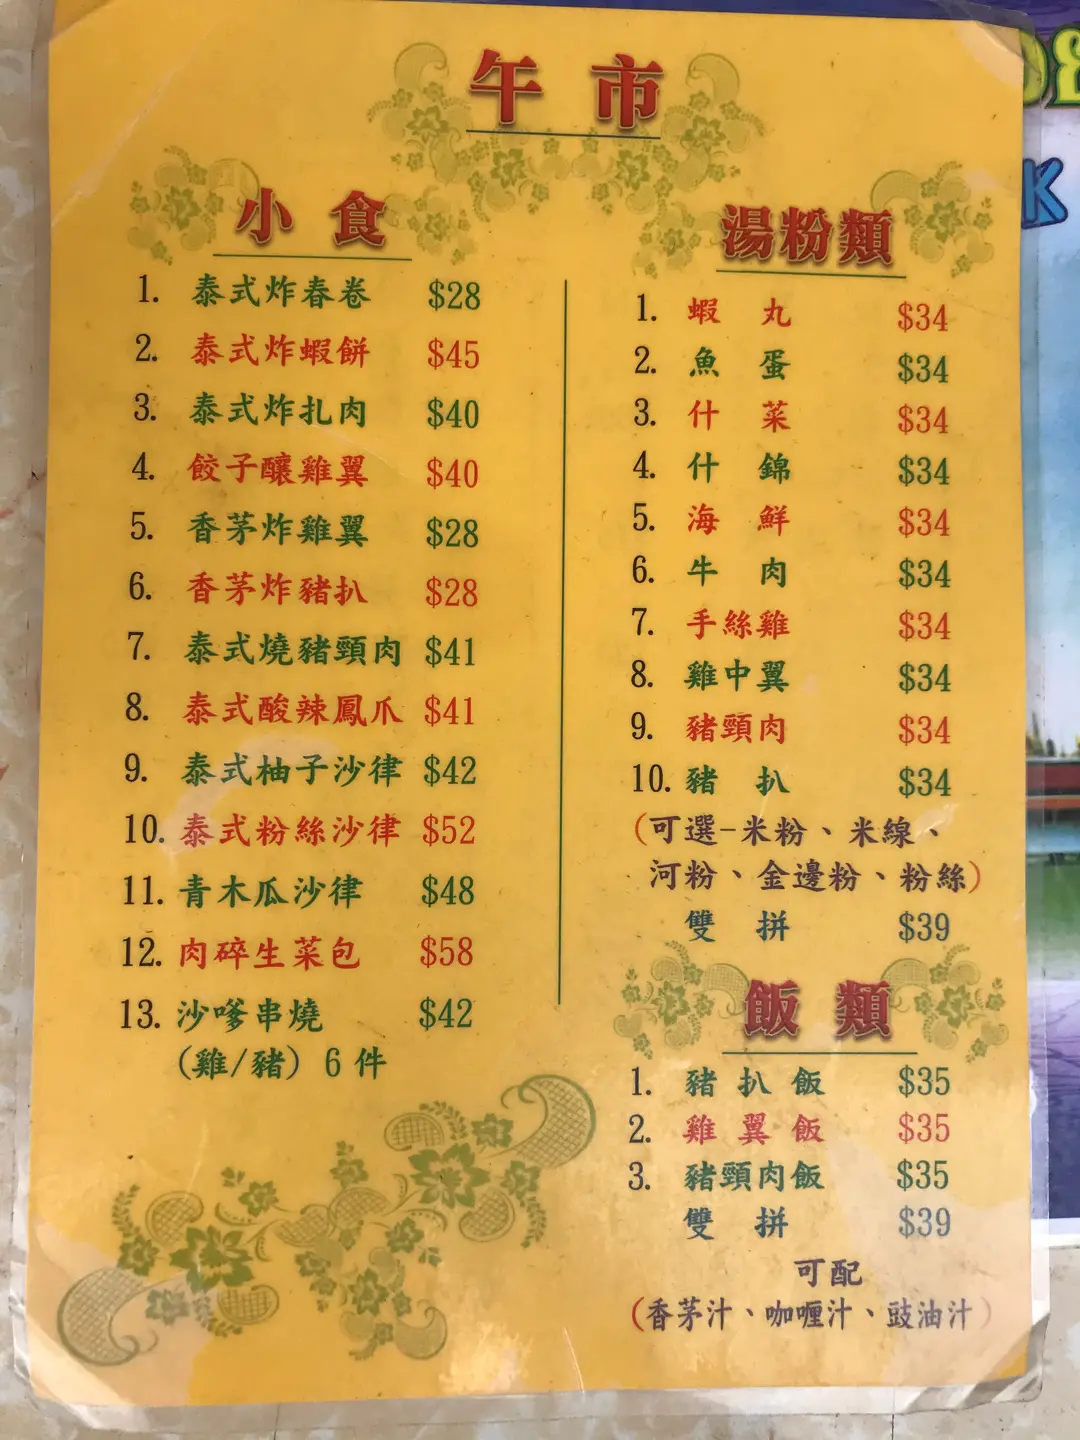 午市
小食
1. 泰式炸春卷 $28
2. 泰式炸蝦餅 $45
3. 泰式炸扎肉 $40
4. 餃子釀雞翼 $40
5. 香茅炸雞翼 $28
6. 香茅炸豬扒 $28
7. 泰式燒豬頸肉 $41
8. 泰式酸辣鳳爪 $41
9. 泰式柚子沙律 $42
10. 泰式粉絲沙律 $52
11. 青木瓜沙律 $48
12. 肉碎生菜包 $58
13. 沙嗲串燒 $42
(雞/豬) 6 件
湯粉類
1. 蝦丸 $34
2. 魚蛋 $34
3. 什菜 $34
4. 什錦 $34
5. 海鮮 $34
6. 牛肉 $34
7. 手絲雞 $34
8. 雞中翼 $34
9. 豬頸肉 $34
10. 豬扒 $34
(可選-米粉、米線、
河粉、金邊粉、粉絲)
雙拼 $39
飯類
1. 豬扒飯 $35
2. 雞翼飯 $35
3. 豬頸肉飯 $35
雙拼 $39
可配
(香茅汁、咖喱汁、豉油汁)
K